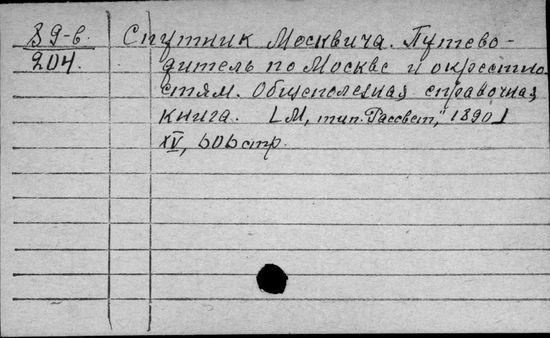 89-в.
204.
Спутник Москвича. Путево-
дитель по Москве и окрестно
стям. Общеполезная справочная
книга. [М, тип. "Рассвет", 1890]
XV, 606 стр.